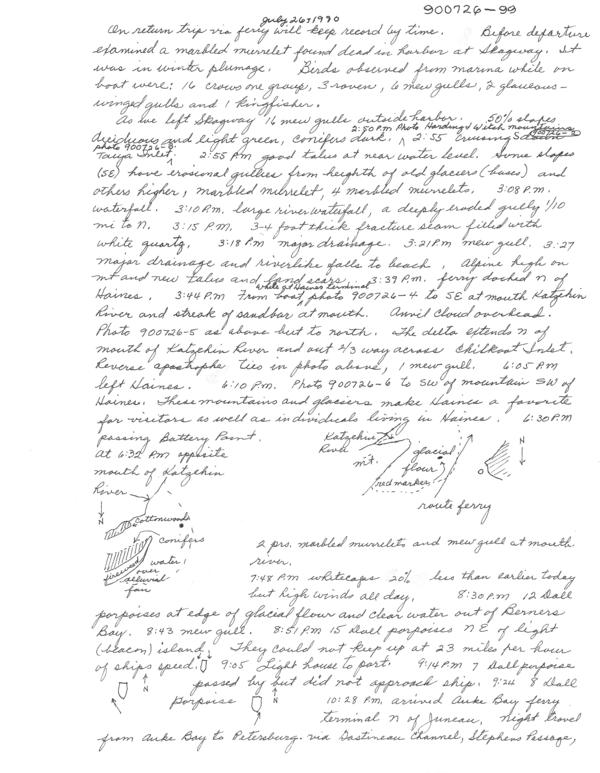 900726-99
July 26, 1990
On return trip via ferry will keep record by time. Before departure
examined a marbled murrelet found dead in harbor at Skagway. It
was in winter plumage. Birds observed from marina while on
boat were: 16 crows one group, 3 raven, 6 mew gulls, 2 glaucous-
winged gulls and 1 kingfisher.
As we left Skagway 16 mew gulls outside harbor. 50% slopes
deciduous and light green, conifers dark. 2:50 P.M. Photo Harding & Welsh mountains 900726-2. 2:55 crossing
photo 900726-3
Taiya Inlet. 2:55 P.M. good talus at near water level. Some slopes
(SE) have erosional gullies from heighth of old glaciers (bases) and
others higher, marbled murrelet, 4 marbled murrelets. 3:08 P.M.
waterfall. 3:10 P.M. large river waterfall, a deeply eroded gully 1/10
mi to N. 3:15 P.M. 3-4 foot thick fracture seam filled with
white quartz. 3:18 P.M. major drainage. 3:21 P.M. mew gull. 3:27
major drainage and riverlike falls to beach, Alpine high on
mt and new talus and land scars. 3:39 P.M. ferry docked N of
Haines. 3:44 P.M. From boat while at Haines terminal, photo 900726-4 to SE at mouth Katzehin
River and streak of sandbar at mouth. Anvil cloud overhead.
Photo 900726-5 as above but to north. The delta extends N of
mouth of Katzehin River and out 2/3 way across Chilkoot Inlet.
Reverse apostrophe ties in photo above, 1 mew gull. 6:05 P.M
left Haines. 6:10 P.M. Photo 900726-6 to SW of mountain SW of
Haines. These mountains and glaciers make Haines a favorite
for visitors as well as individuals living in Haines. 6:30 P.M
passing Battery Point.
At 6:32 P.M opposite
mouth of Katzehin
River
N
cottonwoods
conifers
water
over
alluvial
fan
Katzehin
River
mt.
glacial
flour
red marker
N
route ferry
2 prs. marbled murrelets and mew gull at mouth
river.
7:48 P.M whitecaps 20% less than earlier today
but high winds all day. 8:30 P.M 12 Dall
porpoises at edge of glacial flour and clear water out of Berners
Bay. 8:43 mew gull. 8:51 P.M 15 Dall porpoises NE of light
(beacon) island. They could not keep up at 23 miles per hour
of ships speed. 9:05 Light house to port. 9:14 P.M 7 Dall porpoise
passed by but did not approach ship. 9:24 8 Dall
porpoise
N
N
10:28 P.M. arrived Auke Bay ferry
terminal N of Juneau. Night travel
from Auke Bay to Petersburg via Gastineau Channel, Stephens Passage,